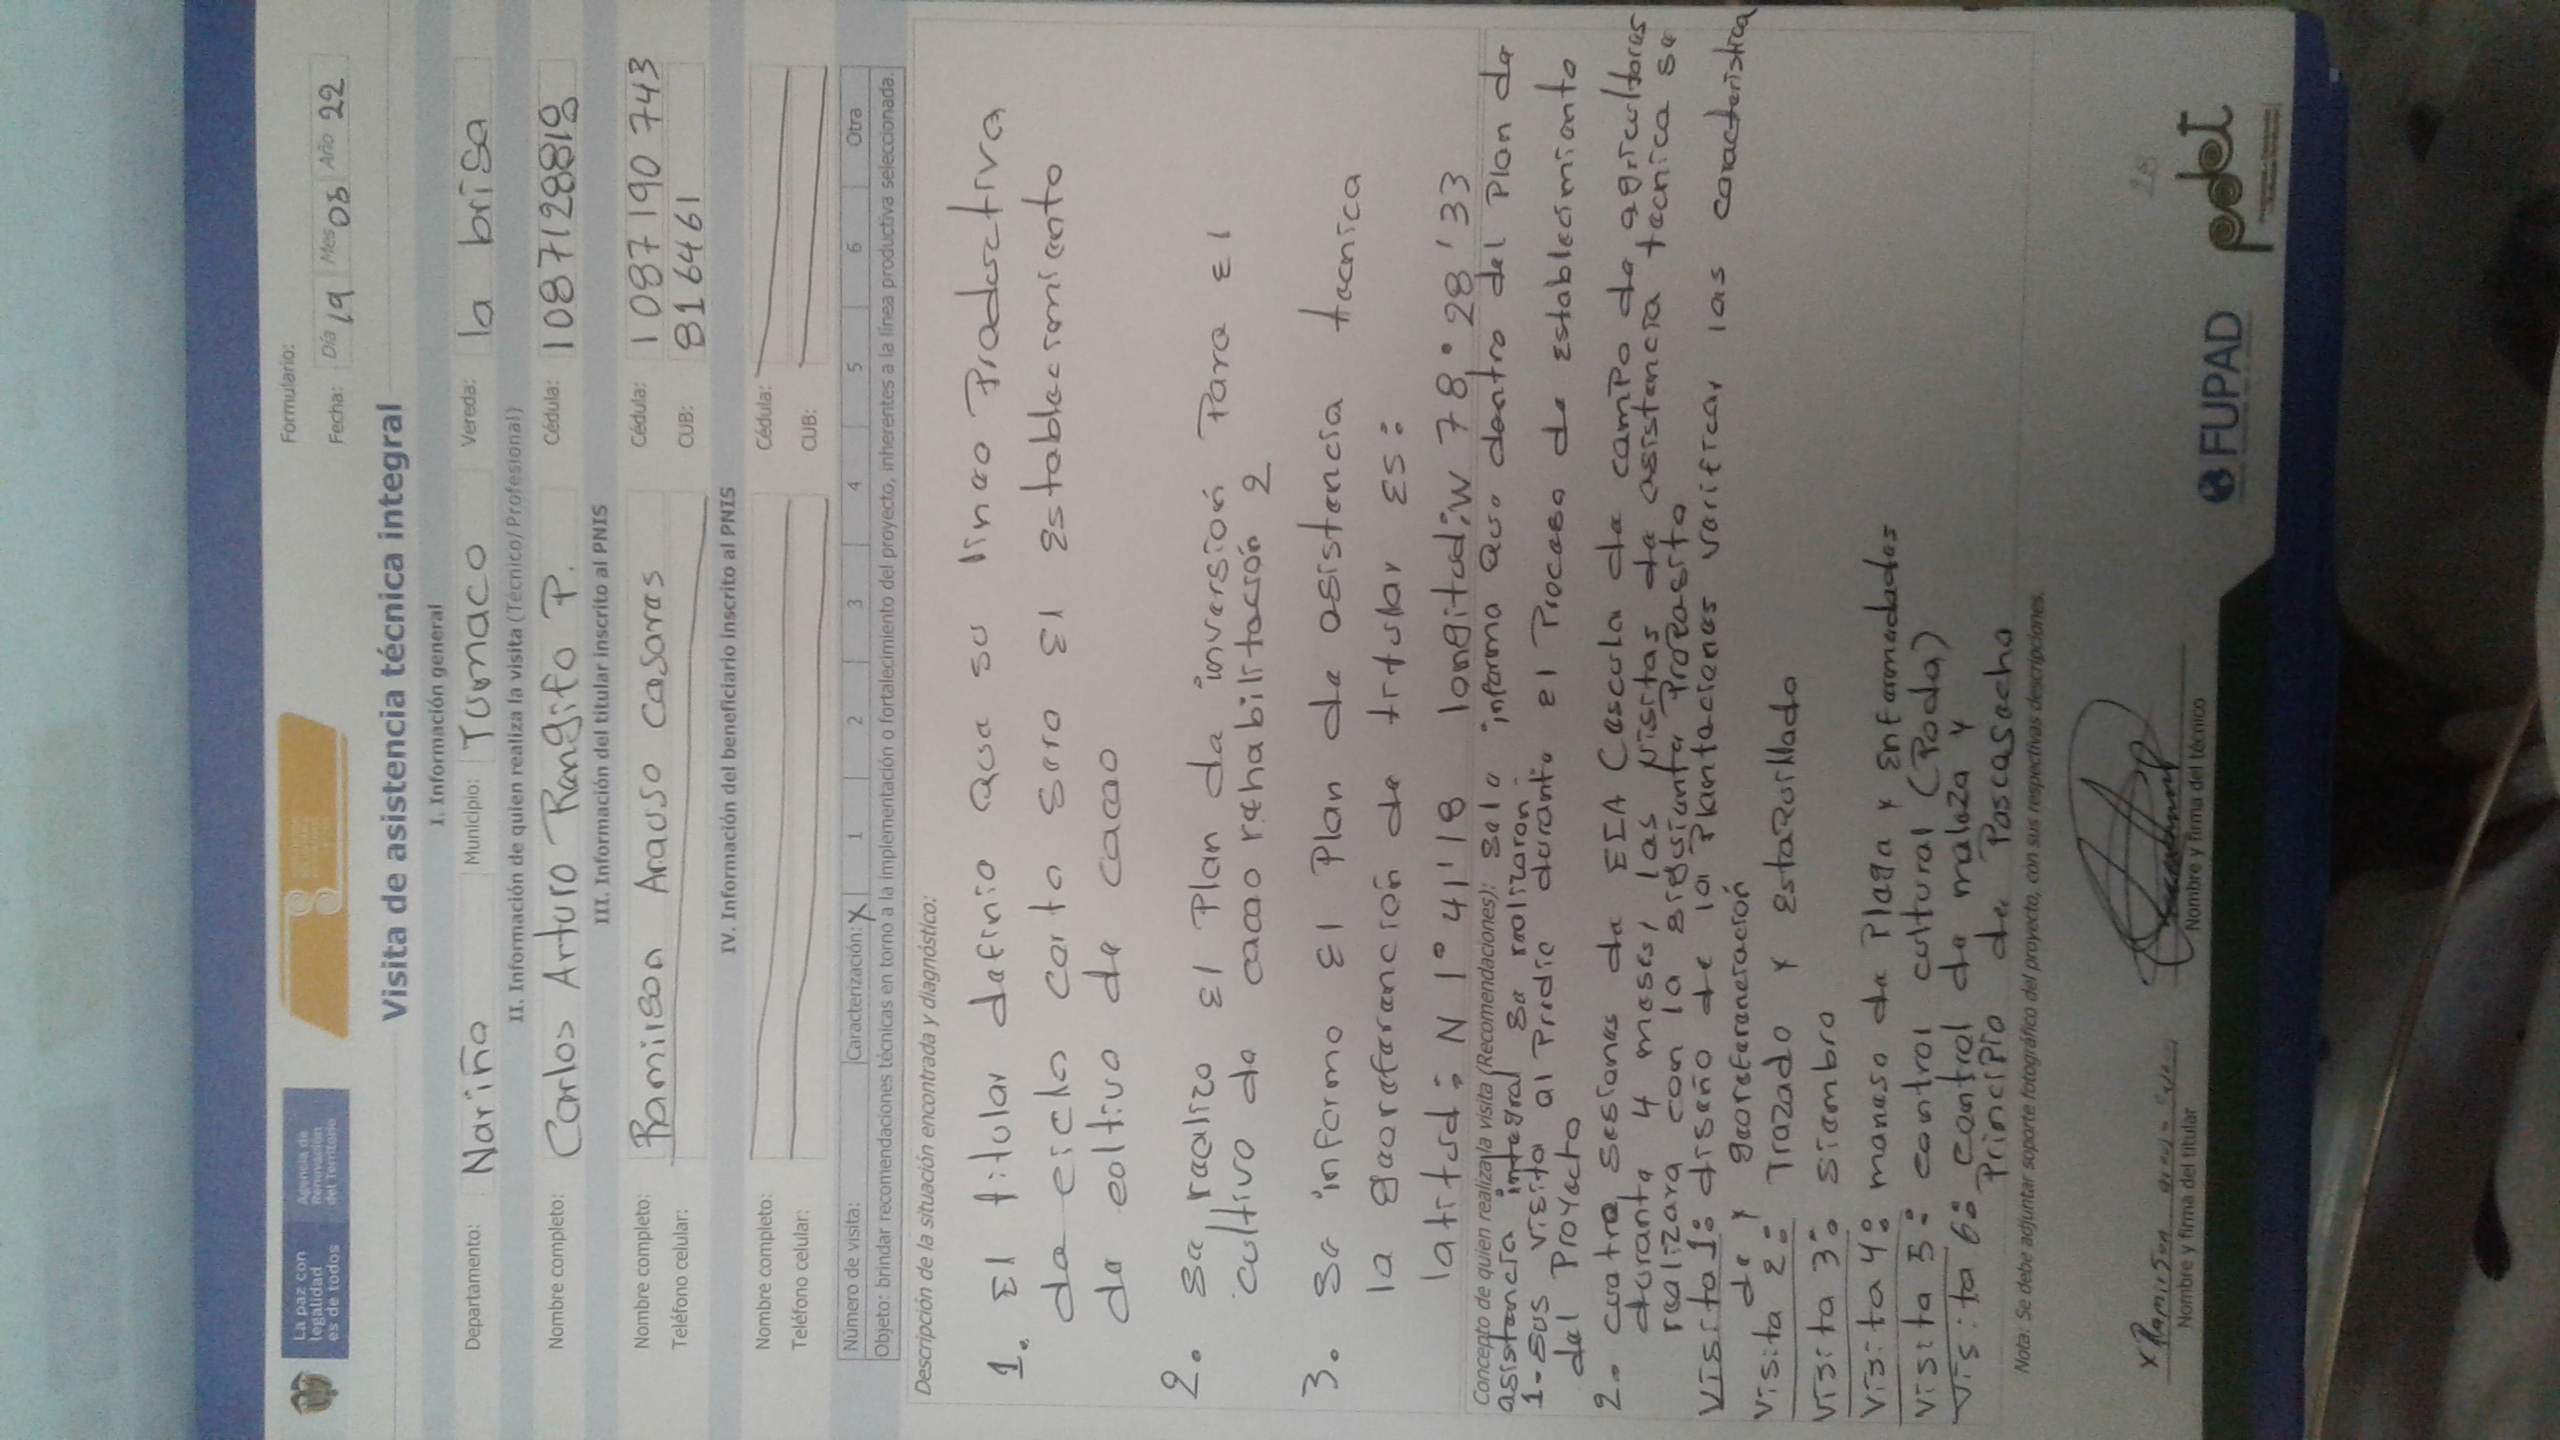 La paz con
legalidad
es de todos
Agencia de
Renovación
del Territorio
Formulario:
Fecha: Día 19 Mes 03 Año 22
Visita de asistencia técnica integral
I. Información general
Departamento: Nariño Municipio: Tumaco Vereda: la brisa
II. Información de quien realiza la visita (Técnico/ Profesional)
Nombre completo: Carlos Arturo Rengifo P. Cédula: 1087128819
III. Información del titular inscrito al PNIS
Nombre completo: Ramilson Arauso Casares Cédula: 1087190743
Teléfono celular: CUB: 816461
IV. Información del beneficiario inscrito al PNIS
Nombre completo: Cédula:
Teléfono celular: CUB:
Número de visita: Caracterización: X 1 2 3 4 5 6 Otra
Objeto: brindar recomendaciones técnicas en torno a la implementación o fortalecimiento del proyecto, inherentes a la línea productiva seleccionada.
Descripción de la situación encontrada y diagnóstico:
1. El titular definio que su linea Productiva
de ciclo corto sera El Establecimiento
de coltivo de cacao
2. Se realizo El Plan de inversión Para El
cultivo de cacao rehabilitación 2
3. Se informo El Plan de asistencia tecnica
la georeferanción de titular Es:
latitud: N 1° 41' 18 longitud: W 78° 28' 33
Concepto de quien realiza la visita (Recomendaciones): se le informa que dentro del Plan de
asistencia integral se realizaron
1- sus visita al Predio durante el Proceso de establecimiento
del Proyecto
2. cuatro sesiones de EIA Cescuela de campo de agricultores
durante 4 meses, las visitas de asistencia tecnica se
realizara con la siguiente Proposito
Visita 1: diseño de la Plantaciones verificar las caracteristica
de y georeferenciación
Visita 2: Trazado y estaquillado
Visita 3: siembro
Visita 4: manejo de Plaga y Enfermedades
Visita 5: control cultural (Poda)
Visita 6: control de maleza y
Principio de Poscosecha
Nota: Se debe adjuntar soporte fotográfico del proyecto, con sus respectivas descripciones.
x Ramilson
Nombre y firma del titular
Nombre y firma del técnico
28
FUPAD
pdet